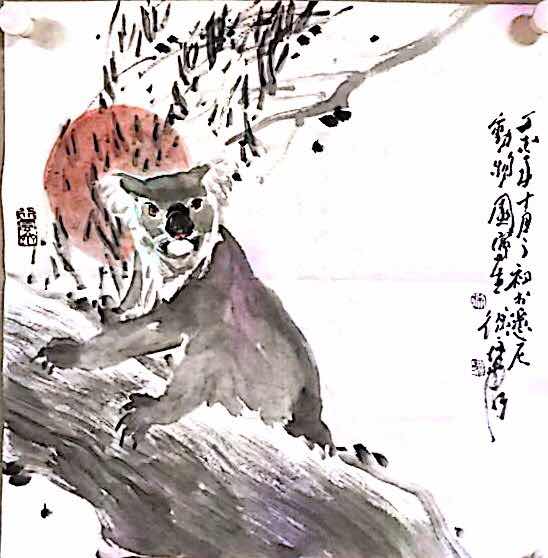 丁亥年十月之初於悉尼
動物園寫生 徐培晨